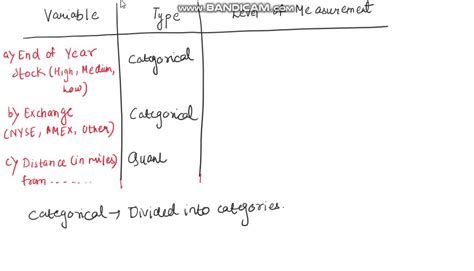 www.BANDICAM.com
Variable Type Level of Measurement
a) End of Year
Stock (High, Medium, Categorical
Low)
b) Exchange Categorical
(NYSE, AMEX, Other)
c) Distance (in miles) Quant
from .......
Categorical → Divided into categories.